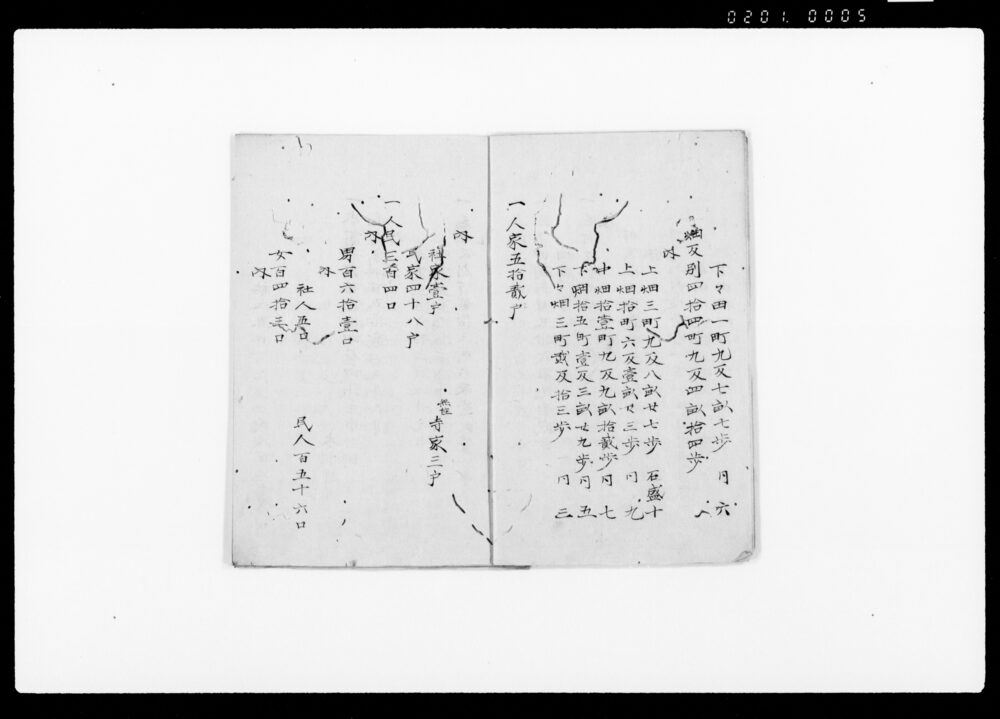 0201. 0005
下々田一町九反七畝七歩 同 六
畑反別四拾四町九反四畝拾四歩
内
上畑三町九反八畝廿七歩 石盛十
上畑拾町六反壹畝廿三歩 同 九
中畑拾壹町九反九畝拾貳歩 同 七
下畑拾五町壹反三畝廿九歩 同 五
下々畑三町貳反拾三歩 同 三
一人家五拾貳戸
内
社家壹戸
無住 寺家三戸
民家四十八戸
一人民三百四口
内
男百六拾壹口
内
社人五口
民人百五十六口
女百四拾三口
内